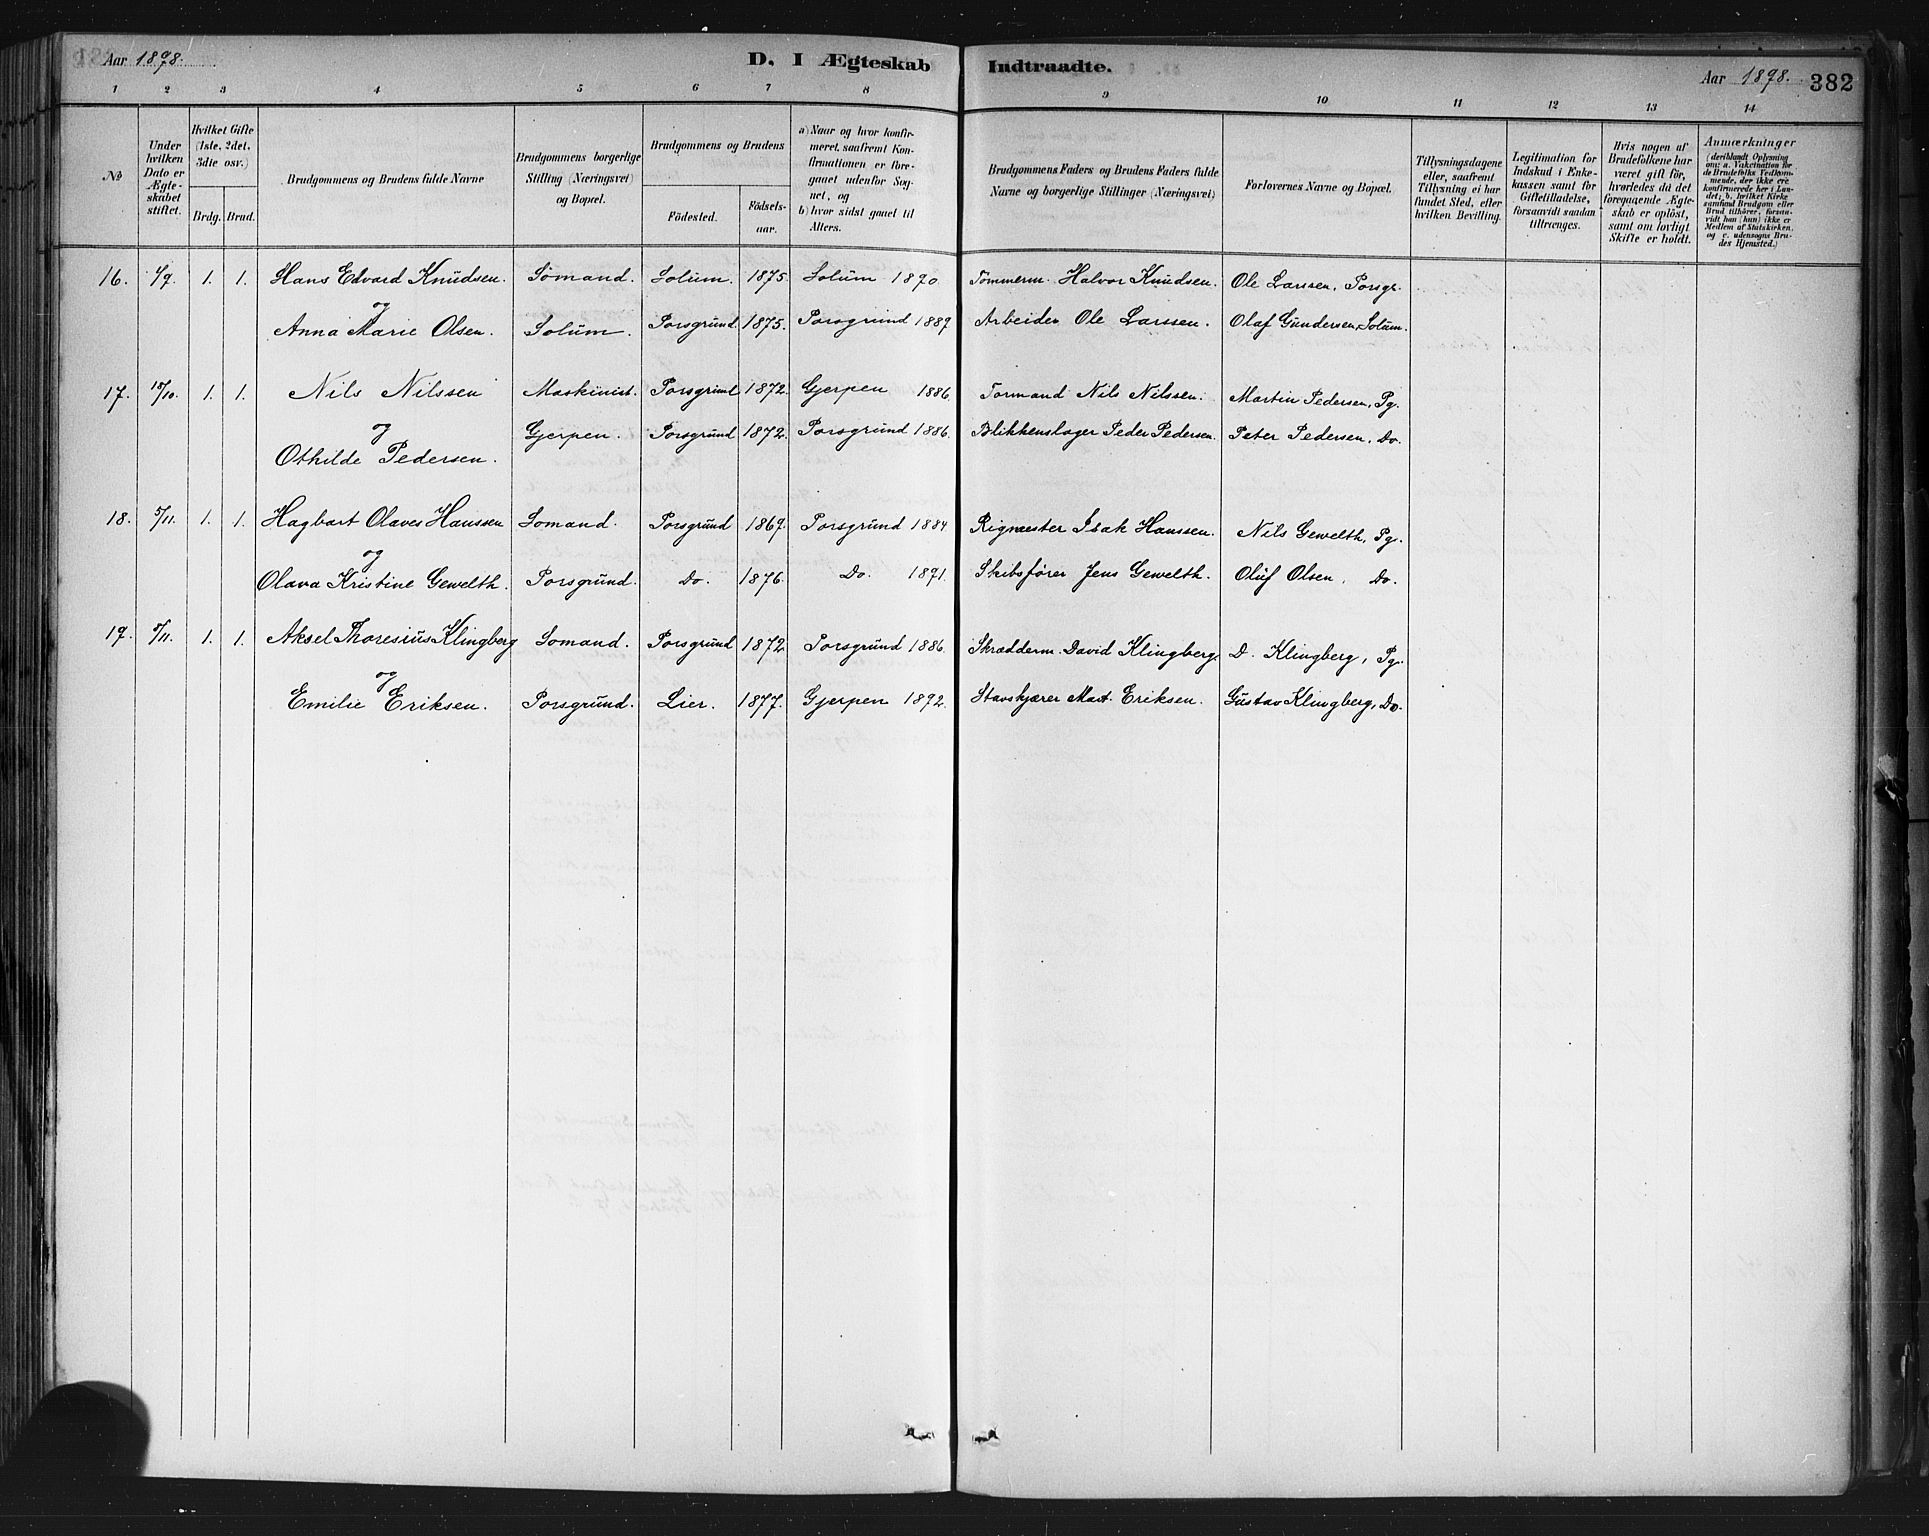 Aar 1898. D. I Ægteskab Indtraadte. Aar 1898. 382
1 2 3 4 5 6 7 8 9 10 11 12 13 14
No
Under hvilken Dato er Ægteskabet stiftet.
Hvilket Gifte (1ste, 2det, 3die osv.)
Brdg. Brud.
Brudgommens og Brudens fulde Navne
Brudgommens borgerlige Stilling (Næringsvei) og Bopæl.
Brudgommens og Brudens
Födested. Födselsaar.
a) Naar og hvor konfirmeret, saafremt Konfirmationen er foregaaet udenfor Sognet, og
b) hvor sidst gaaet til Alters.
Brudgommens Faders og Brudens Faders fulde Navne og borgerlige Stillinger (Næringsvei)
Forlovernes Navne og Bopæl.
Tillysningsdagene eller, saafremt Tillysning ei har fundet Sted, efter hvilken Bevilling.
Legitimation for Indskud i Enkekassen samt for Giftetilladelse, forsaavidt saadan tiltrænges.
Hvis nogen af Brudefolkene har været gift för, hvorledes da det foregaaende Ægteskab er oplöst, samt om lovligt Skifte er holdt.
Anmærkninger
(deriblandt Oplysning om: a. Vakcination for de Brudefolks Vedkommende, der ikke ere konfirmerede her i Landet; b. hvilket Kirkesamfund Brudgom eller Brud tilhörer, forsaavidt han (hun) ikke er Medlem af Statskirken, og c. udensogns Brudes Hjemsted.)
16. 1. 1. Hans Edvard Knudsen. Sömand. Solum. 1875. Solum 1890. Tömmerm. Halvor Knudsen. Ole Larssen, Porsgr.
og
Anna Marie Olsen. Solum. Porsgrund. 1875. Porsgrund 1889. Arbeider Ole Larssen. Olaf Gundersen, Solum.
17. 15/10. 1. 1. Nils Nilssen Maskinist. Porsgrund 1872. Gjerpen 1886. Formand Nils Nilssen. Martin Pedersen, Pg.
og Gjerpen. Porsgrund 1872. Porsgrund 1886. Blikkenslager Peder Pedersen. Peter Pedersen, Do.
Othilde Pedersen.
18. 5/11. 1. 1. Hagbart Olaves Hanssen Somand. Porsgrund 1869. Porsgrund 1884. Rigmester Isak Hanssen. Nils Gewelth, Pg.
og
Olava Kristine Gewelth. Porsgrund. Do. 1876. Do. 1891. Skibsfører Jens Gewelth. Oluf Olsen, Do.
19. 5/11. 1. 1. Aksel Thoresius Klingberg Somand. Porsgrund 1872. Porsgrund 1886. Skrædderm. David Klingberg. D. Klingberg, Pg.
og
Emilie Eriksen. Porsgrund. Lier. 1877. Gjerpen 1892. Stavskjærer Mart. Eriksen. Gustav Klingberg, Do.